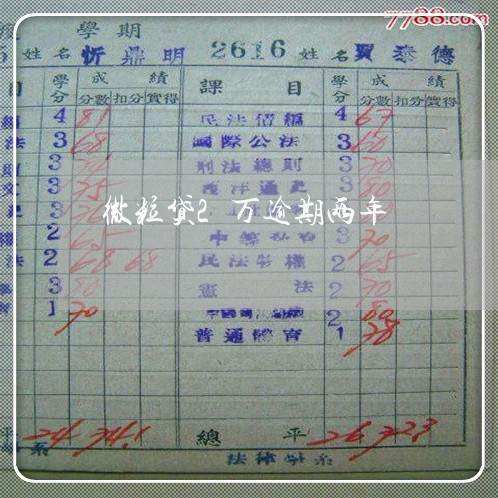 7788.com
學期
5 姓名 忻鼎明 2616 姓名 賈泰德
目 學分 成績 課目 學分 成績
分數 扣分 實得 分數 扣分 實得
4 81 民法債編 4 67
法 3 68 國際公法 3 60
3 刑法總則 3 70
3 75 西洋通史 3 80
微粒贷2 万逾期两年
2 65 3 70
法 2 68 68 民法物權 2 65
3 80 憲法 2 70
1 70 2 80
普通體育 1 78
平 24 74.1 總平 26 72.3
系 法律學系